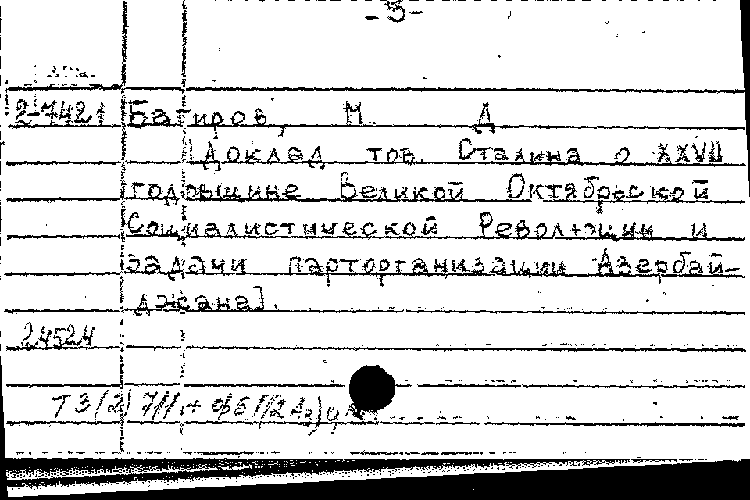 -3-
2-7421 Багиров, М. Д.
[Доклад тов. Сталина о XXVII
годовщине Великой Октябрьской
Социалистической Революции и
задачи парторганизации Азербай-
джана].
24524
Т3(2)711+